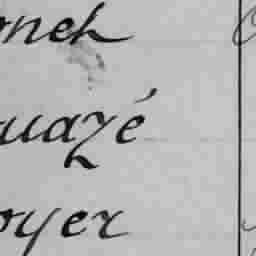 onch
uazé
oyer